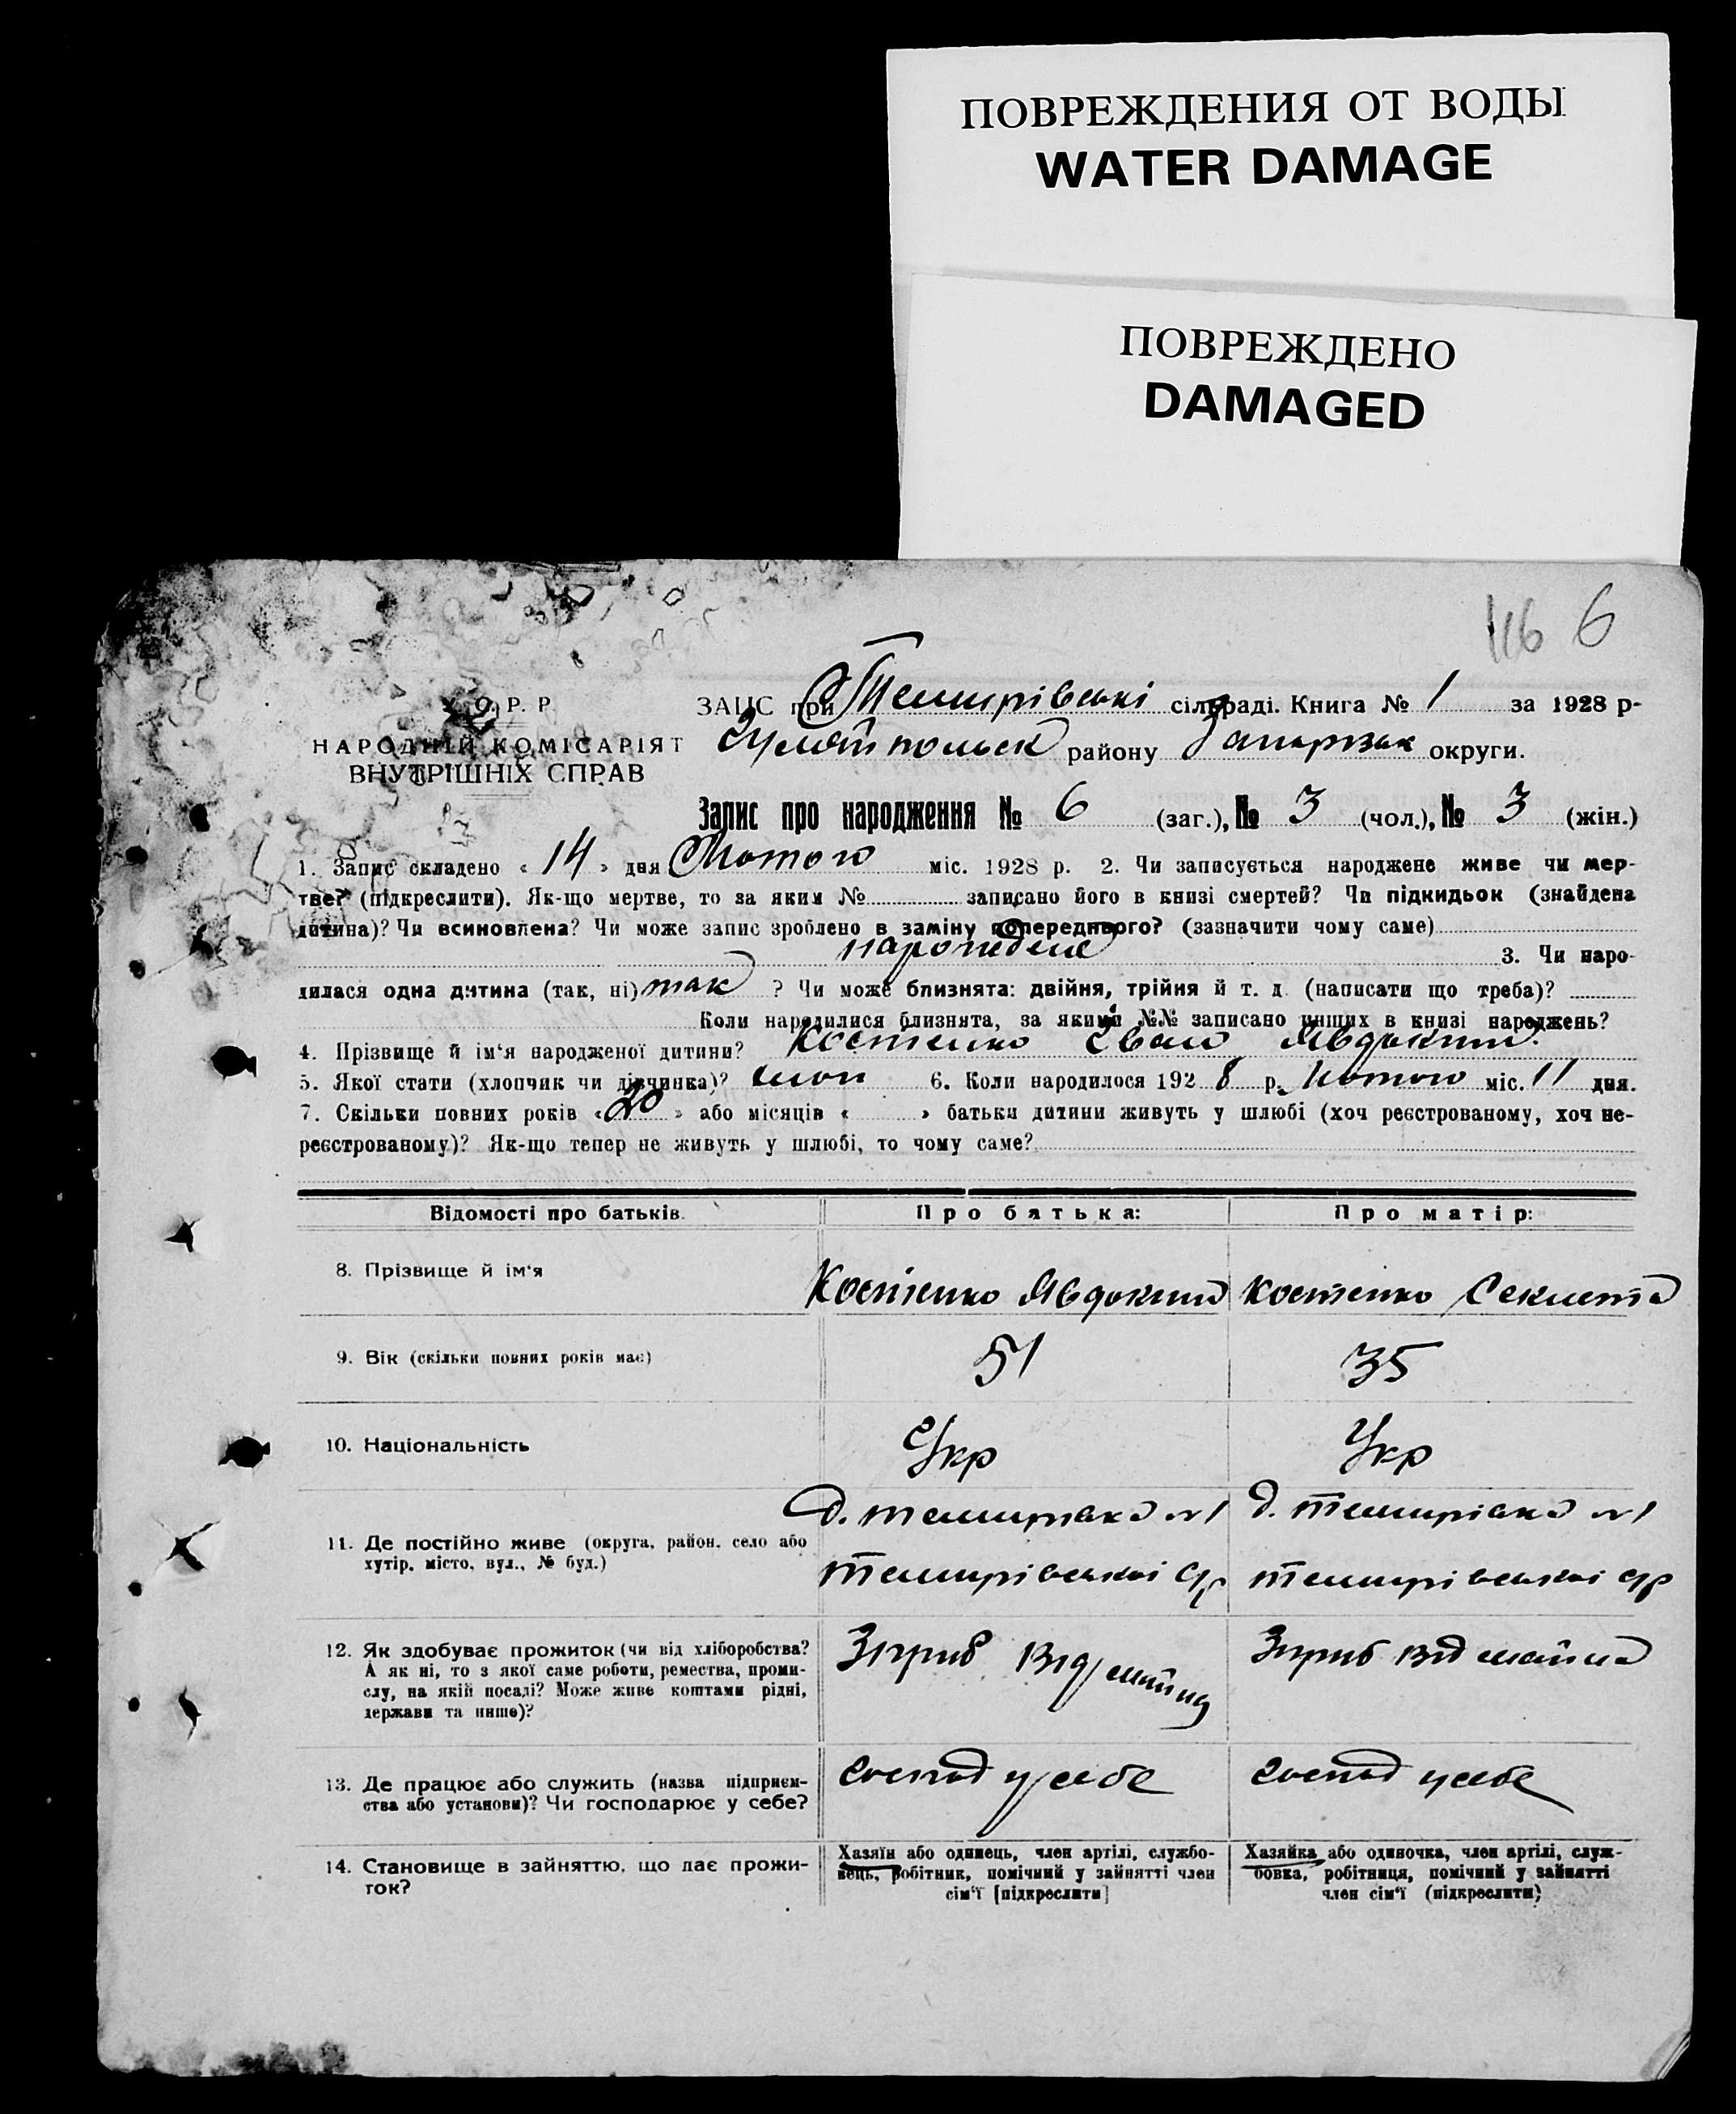 ПОВРЕЖДЕНИЯ ОТ ВОДЫ
WATER DAMAGE
ПОВРЕЖДЕНО
DAMAGED
116 6
У. С. Р. Р.
НАРОДНІЙ КОМІСАРІЯТ
ВНУТРІШНІХ СПРАВ
ЗАГС при Темирівські сільраді. Книга № 1 за 1928 р-
Гуляйпольськ району Запорізьк округи.
Запис про народження № 6 (заг.), № 3 (чол.), № 3 (жін.)
1. Запис складено « 14 » дня Лютого міс. 1928 р. 2. Чи записується народжене живе чи мер-
тве? (підкреслити). Як-що мертве, то за яким № записано його в книзі смертей? Чи підкидьок (знайдена
дитина)? Чи всиновлена? Чи може запис зроблено в заміну попереднього? (зазначити чому саме)
народжене 3. Чи наро-
дилася одна дитина (так, ні) так ? Чи може близнята: двійня, трійня й т. д. (написати що треба)?
Коли народилися близнята, за якими №№ записано инших в книзі народжень?
4. Прізвище й ім'я народженої дитини? Костенко Іван Явдоким.
5. Якої стати (хлопчик чи дівчинка)? хлоп 6. Коли народилося 192 8 р. Лютого міс. 11 дня.
7. Скільки повних років « 20 » або місяців « » батьки дитини живуть у шлюбі (хоч реєстрованому, хоч не-
реєстрованому)? Як-що тепер не живуть у шлюбі, то чому саме?
Відомості про батьків. Про батька: Про матір:
8. Прізвище й ім'я Костенко Явдоким Костенко Секлета
9. Вік (скільки повних років має) 51 35
10. Національність Укр Укр
11. Де постійно живе (округа, район, село або
хутір, місто, вул., № буд.)
д. Темирівка №1
Темирівської с/р
д. Темирівка №1
Темирівської с/р
12. Як здобуває прожиток (чи від хліборобства?
А як ні, то з якої саме роботи, ремества, проми-
слу, на якій посаді? Може живе коштами рідні,
держави та инше)?
від майна
від майна
13. Де працює або служить (назва підприєм-
ства або установи)? Чи господарює у себе?
господ у себе
господ у себе
14. Становище в зайняттю, що дає прожи-
ток?
Хазяїн або одинець, член артілі, службо-
вець, робітник, помічний у зайнятті член
сім'ї [підкреслити]
Хазяйка або одиночка, член артілі, служ-
бовка, робітниця, помічний у зайнятті
член сім'ї (підкреслити)